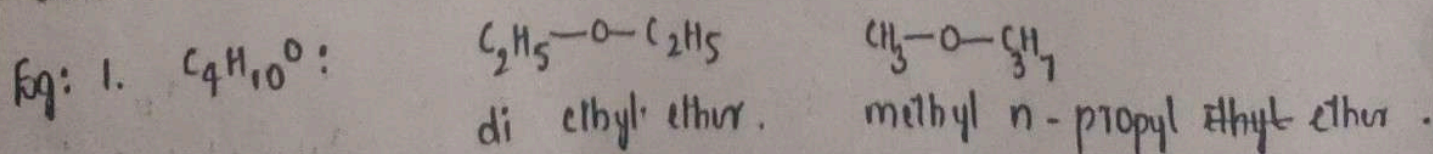 Eg: 1. C4H10O: C2H5—O—C2H5 CH3—O—C3H7
di ethyl ether. methyl n-propyl ether.